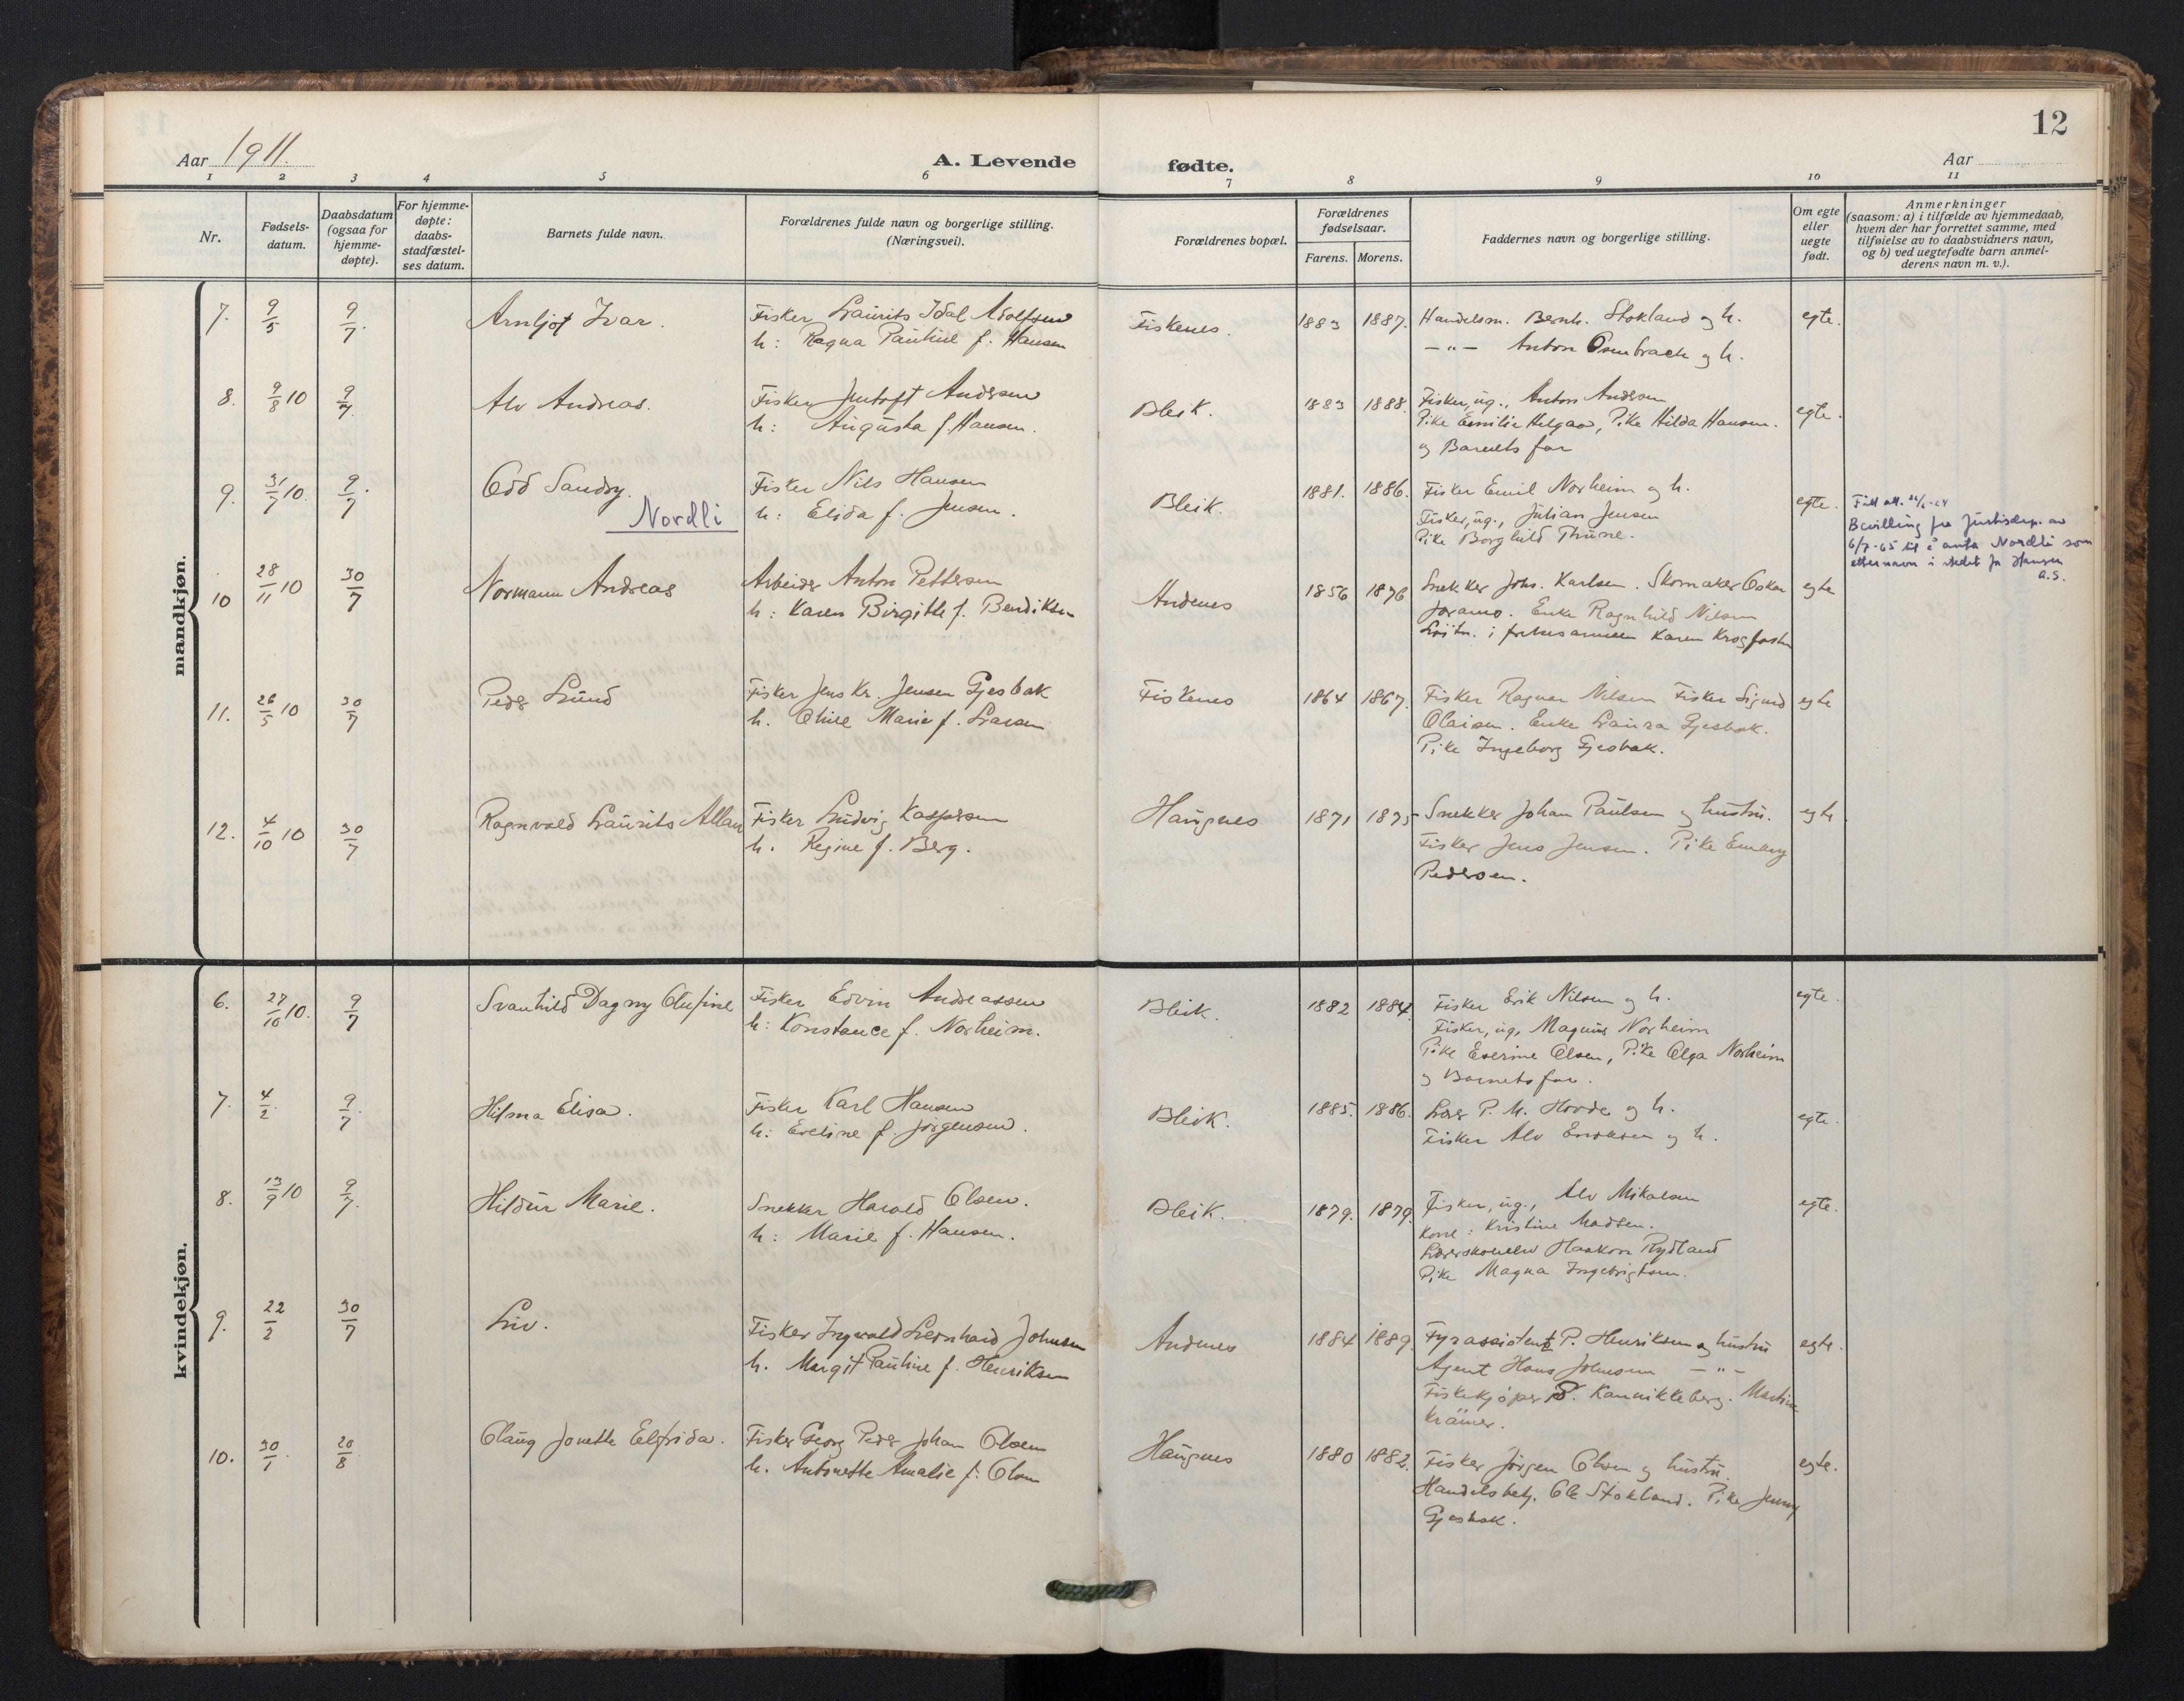 12
Aar 1911.
A. Levende
fødte.
Aar
1 2 3 4 5 6 7 8 9 10 11
Nr.
Fødsels-
datum.
Daabsdatum
(ogsaa for
hjemme-
døpte).
For hjemme-
døpte:
daabs-
stadfæstel-
ses datum.
Barnets fulde navn.
Forældrenes fulde navn og borgerlige stilling.
(Næringsvei).
Forældrenes bopæl.
Forældrenes
fødselsaar.
Farens. Morens.
Faddernes navn og borgerlige stilling.
Om egte
eller
uegte
født.
Anmerkninger
(saasom: a) i tilfælde av hjemmedaab,
hvem der har forrettet samme, med
tilføielse av to daabsvidners navn,
og b) ved uegtefødte barn anmel-
derens navn m. v.).
mandkjøn.
7. 9/5 9/7. Arnljot Ivar. Fisker Laurits Idal Adolfsen
h: Ragna Pauline f. Hansen
Fiskenes. 1883 1887. Handelsm. Bernh. Stokland og h. egte.
—"— Anton Osenbrach og h.
8. 9/8 10 9/7. Alv Andreas. Fisker Jentoft Andersen
h: Augusta f. Hansen.
Bleik. 1883 1888. Fisker, ug., Anton Andersen egte.
Pike Emilie Helgas, Pike Hilda Hansen.
og Barnets far
9. 31/7 10. 9/7. Odd Sandøy. Fisker Nils Hansen
Nordli h: Elida f. Jensen.
Bleik. 1881. 1886. Fisker Emil Norheim og h. egte.
Fisker, ug., Julian Jensen
Pike Borghild Thune.
Bevilling fra Justisdep. av
6/7-65 til å anta Nordli som
etternavn i stedet for Hansen
A.S.
10 28/11 10 30/7 Normann Andreas Arbeider Anton Pettersen
h: Karen Birgitte f. Bendiksen
Andenes 1856 1876 Snekker Johs. Karlsen. Skomaker Oskar egte
Joramo. Enke Ragnhild Nilsen
Løitn. i frelsesarmeen Karen Krogfasth
11. 26/5 10 30/7 Peder Lund Fisker Jens Kr. Jensen Gjesbak
h. Oline Marie f. Larsen
Fiskenes 1864 1867. Fisker Ragnar Nilsen Fisker Sigurd egte
Olaisen. Enke Laura Gjesbak.
Pike Ingeborg Gjesbak.
12. 4/10 10 30/7 Ragnvald Laurits Allan Fisker Ludvig Kaspersen
h. Regine f. Berg.
Haugnes 1871 1875 Snekker Johan Paulsen og hustru. egte
Fisker Jens Jensen. Pike Emmy
Pedersen.
kvindekjøn.
6. 27/10 10. 9/7 Svanhild Dagny Olufine Fisker Edvin Andreassen
h: Konstance f. Norheim.
Bleik. 1882 1884. Fisker Erik Nilsen og h. egte.
Fisker, ug, Magnus Norheim
Pike Eserine Olsen, Pike Olga Norheim
og Barnets far.
7. 4/2. 9/7. Hilma Elisa. Fisker Karl Hansen
h: Eveline f. Jørgensen.
Bleik. 1885. 1886. Lærer P. M. Hovde og h. egte.
Fisker Alv Eriksen og h.
8. 13/9 10 9/7. Hildur Marie. Snekker Harald Olsen.
h: Marie f. Hansen.
Bleik. 1879. 1879. Fisker, ug., Alv Mikalsen egte.
Kone: Kristine Madsen.
Lærerskoleelev Haakon Rydland
Pike Magna Ingebrigtsen.
9. 22/2 30/7 Liv. Fisker Ingvald Lernhard Johnsen
h. Margit Pauline f. Henriksen
Andenes 1884 1889. Fyrassistent P. Henriksen og hustru egte.
Agent Hans Johnsen —"—
Fiskekjøper P. Kannikkeberg. Martine
Krämer.
10. 30/1. 20/8 Olaug Jonette Elfrida. Fisker Georg Peder Johan Olsen
h. Antonette Amalie f: Olsen
Haugnes 1880 1882. Fisker Jørgen Olsen og hustru. egte.
Handelsbetj. Ole Stokland. Pike Jenny
Gjesbak.